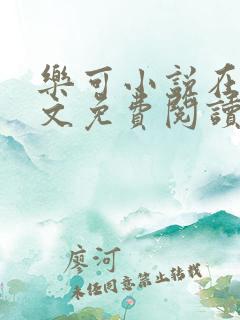 樂可小說在
文免費閱讀
廖河
未經同意禁止轉載